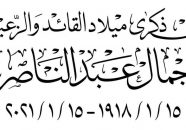 ذكرى ميلاد القائد والزعيم
جمال عبد الناصر
١٩١٨/١/١٥ - ٢٠٢١/١/١٥